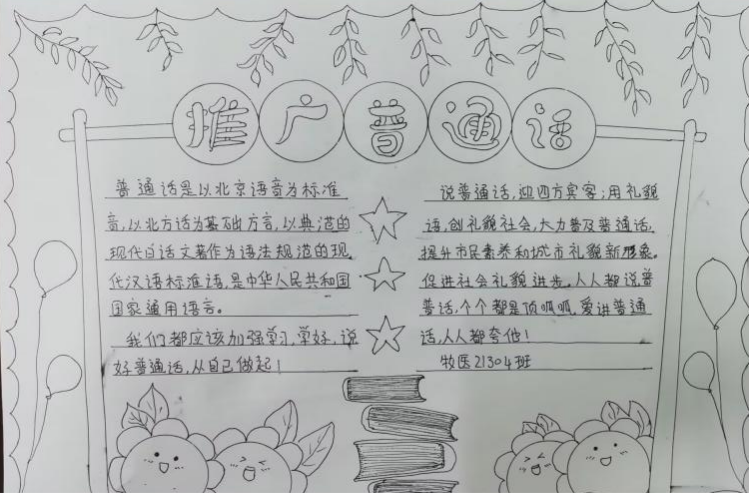 推广普通话
普通话是以北京语音为标准
音,以北方话为基础方言,以典范的
现代白话文著作为语法规范的现
代汉语标准语,是中华人民共和国
国家通用语言。
我们都应该加强学习,学好,说
好普通话,从自己做起!
说普通话,迎四方宾客;用礼貌
语,创礼貌社会,大力普及普通话,
提升市民素养和城市礼貌新形象。
促进社会礼貌进步。人人都说普
普话,个个都是顶呱呱,爱讲普通
话,人人都夸他!
牧医21304班